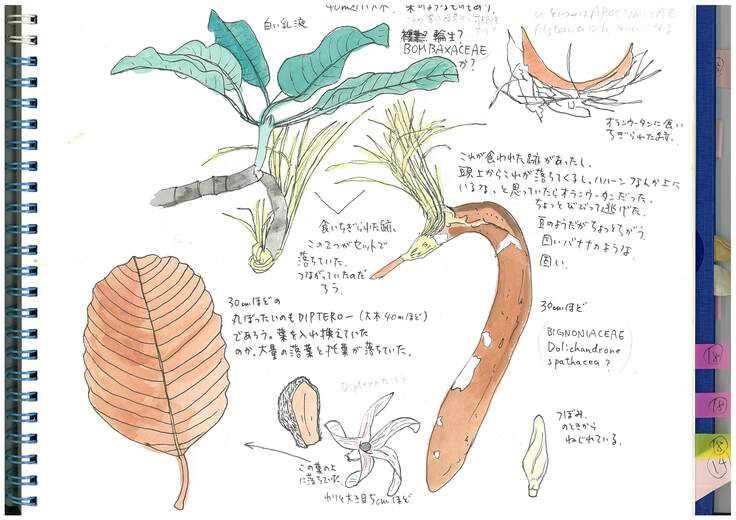 白い乳液
40mくらい大木.
輪生?
BOMBAXACEAE
か?
APOCYNACEAE
40mになる
オランウータンに食い
ちぎられた跡.
これが食われた跡があったし,
頭上からこれが落ちてくるし, ハハーンなんか上に
いるな、と思っていたらオランウータンだった.
ちょっとビビって逃げた.
豆のようだがちょっとちがう
固いバナナのような.
固い.
食いちぎられた跡.
この2つがセットで
落ちていた.
つながっていたのだ
ろう.
30cmほどの
丸ぼったいのもDIPTERO-(大木40mほど)
であろう。葉を入れ換えていた
のか、大量の落葉と托葉が落ちていた.
30cmほど
BIGNONIACEAE
Dolichandrone
spathacea?
Dipteroだろう
つぼみ.
のときから
ねじれている.
この葉の上
に落ちていた.
わりと大き目5cmほど
18
18
18
14